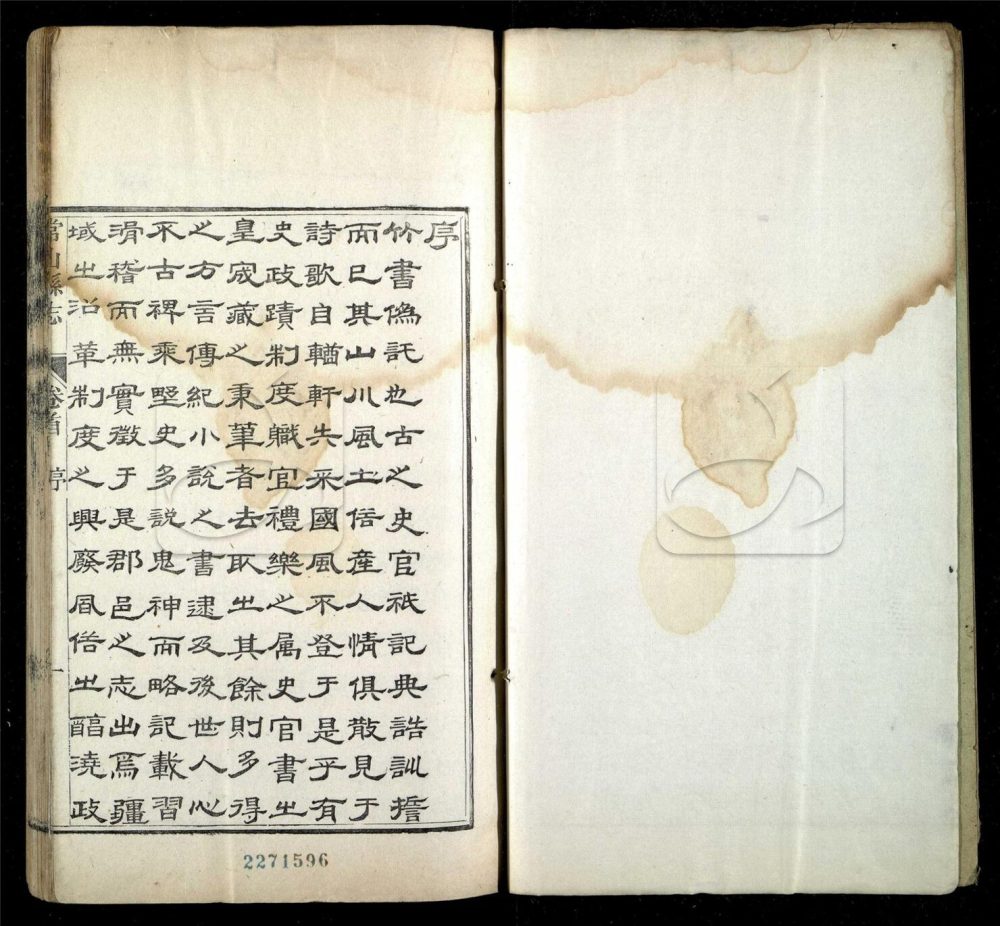 序
竹書偽託也古之史官祇記典誥訓
而已其山川風土俗產人情俱散見于
詩歌自輶軒失采國風不登于是乎有
史政蹟制度職宜禮樂之属史官書之
皇宬藏之秉筆者去取之其餘則多得
之方言傳紀小說之書逮及後世人心
不古稗乘野史多說鬼神而略記載習
滑稽而無實徵于是郡邑之志出焉疆
域之沿革制度之興廢風俗之醕澆政
常山縣志 卷首 序 一
2271596